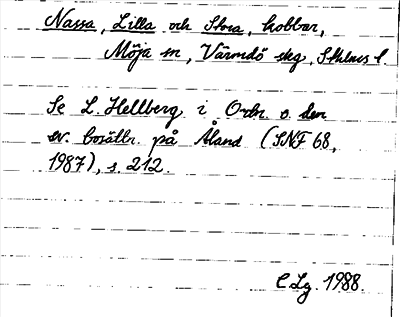 Nassa, Lilla och Stora, kobbar,
Möja sn, Värmdö skg, Sthlms l.
Se L. Hellberg i Ortn. o. den
sv. bosättn. på Åland (SNF 68,
1987), s. 212.
C Lg. 1988.